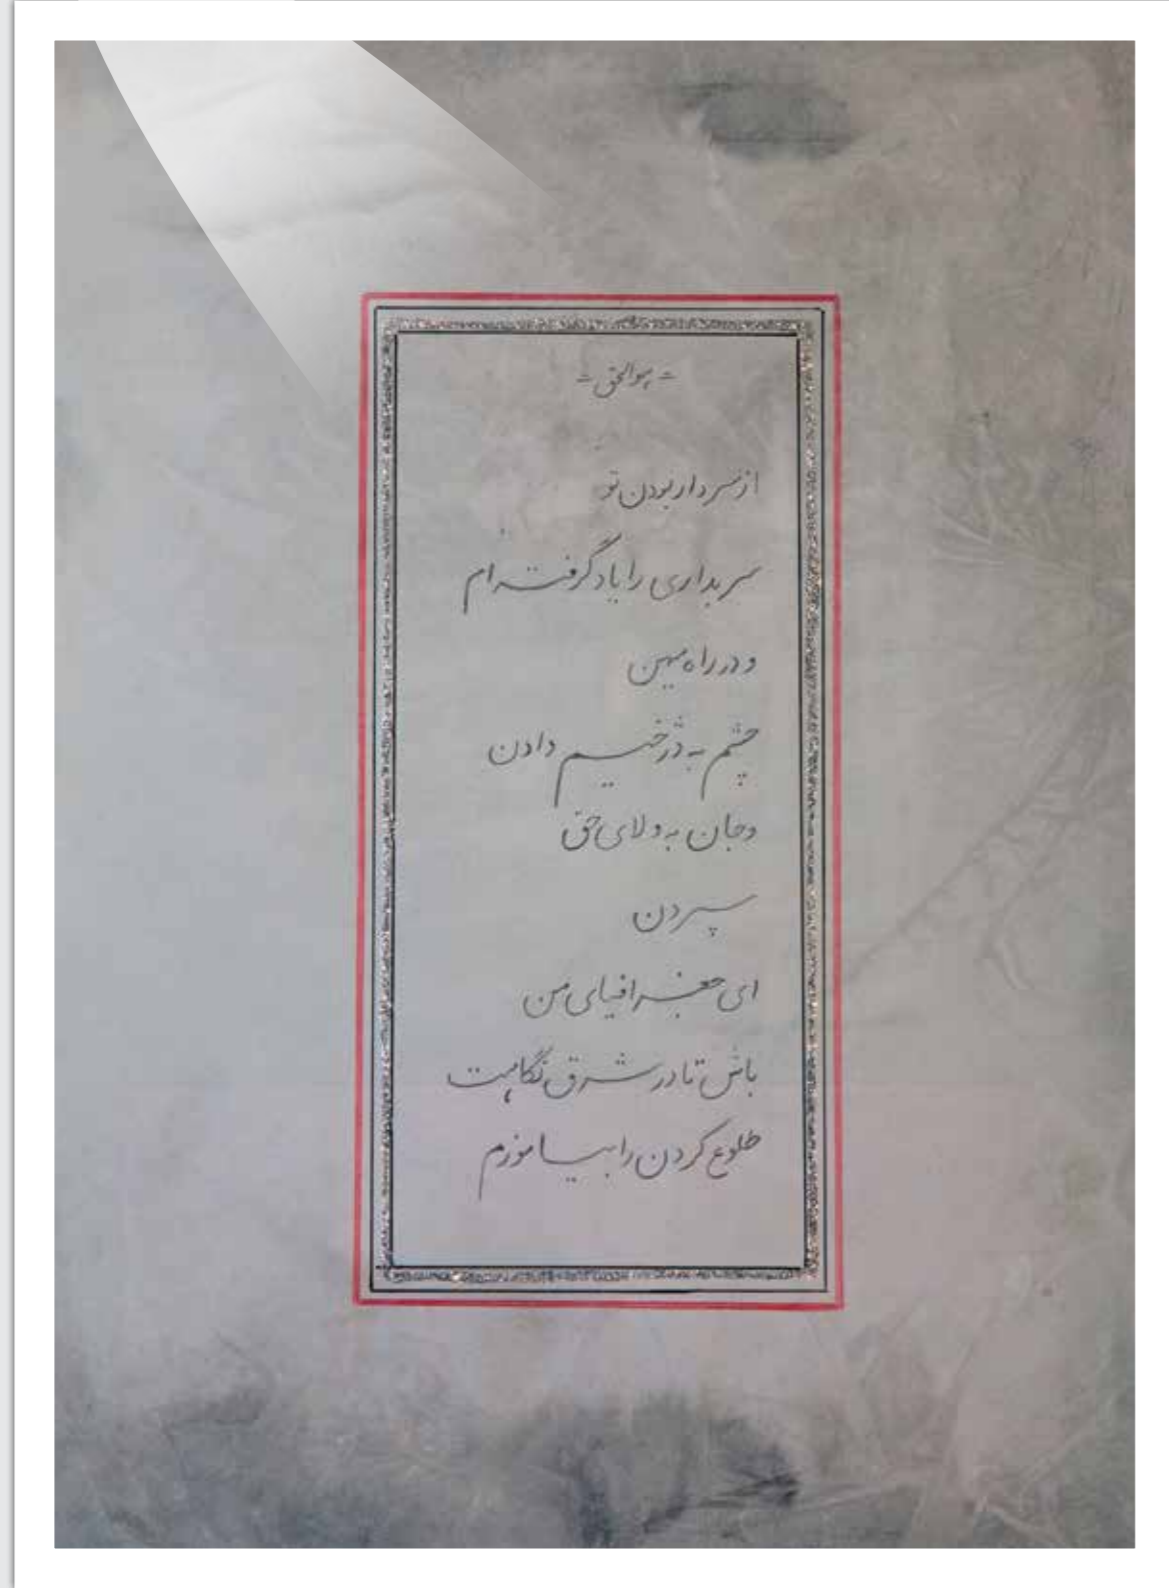 هوالحق
از سردار بودن تو
سربداری را یاد گرفته ام
و در راه میهن
چشم به دژخیم دادن
و جان به ولای حق
سپردن
ای جغرافیای من
باش تا در شرق نگاهت
طلوع کردن را بیاموزم